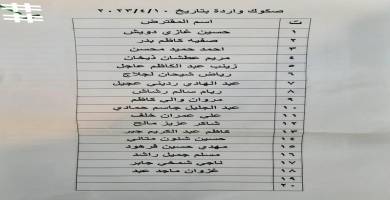 صكوك واردة بتاريخ ٢٠٢٣/٤/١٠
ت اسم المقترض
١ حسين غازي دويش
٢ صفيه كاظم بدر
٣ احمد حميد محسن
٤ مريم عطشان ذيخان
٥ زينب عبد الكاظم عاجل
٦ رياض شيحان لجلاج
٧ عبد الهادي رديني عجيل
٨ ريام سالم رشاش
٩ مروان والي كاظم
١٠ عبد الجليل جاسم حمادي
١١ علي عمران خلف
١٢ شاكر عزيز مالح
١٣ كاظم عبد الكريم جبر
١٤ حسين شنون متاني
١٥ مهدي حسين فرهود
١٦ مسلم جميل راشد
١٧ ناجي شمخي جابر
١٨ غزوان ماجد عبد
١٩
٢٠